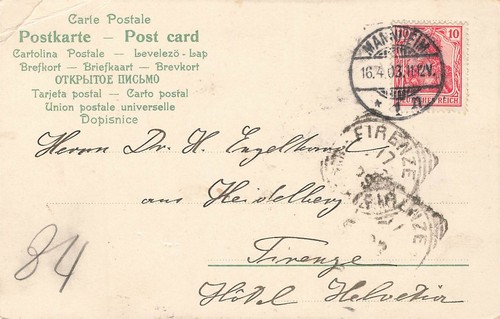 Carte Postale
Postkarte — Post card
Cartolina Postale — Levelező-Lap
Brefkort — Briefkaart — Brevkort
ОТКРЫТОЕ ПИСЬМО
Tarjeta postal — Carto postal
Union postale universelle
Dopisnice
MANNHEIM
16.4.03.11-12V.
* 1 n
10
DEUTSCHES REICH
FIRENZE
17
FIRENZE
Herrn Dr. H. Engelhard
aus Heidelberg
Firenze
Hôtel Helvetia
84